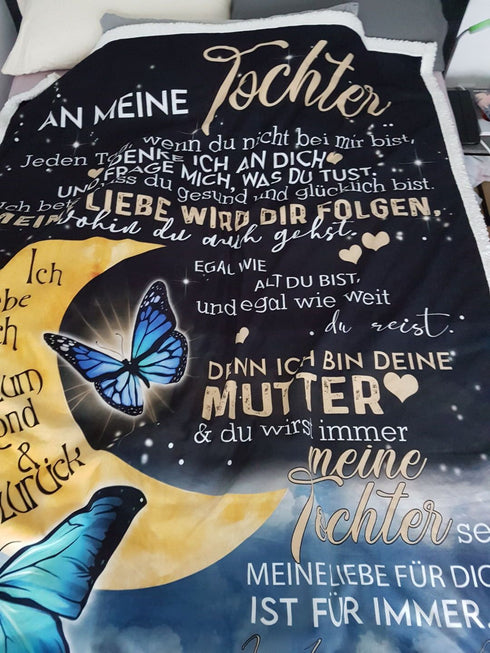 AN MEINE Tochter
wenn du nicht bei mir bist,
Jeden DENKE ICH AN DICH
FRAGE MICH, WAS DU TUST.
du gesund und glücklich bist.
Ich
LIEBE WIRD DIR FOLGEN,
wohin du auch gehst.
EGAL WIE
ALT DU BIST,
und egal wie weit
du reist.
DENN ICH BIN DEINE
MUTTER
& du wirst immer
meine
Tochter
MEINE LIEBE FÜR
IST FÜR IMMER.
Ich
&
zurück